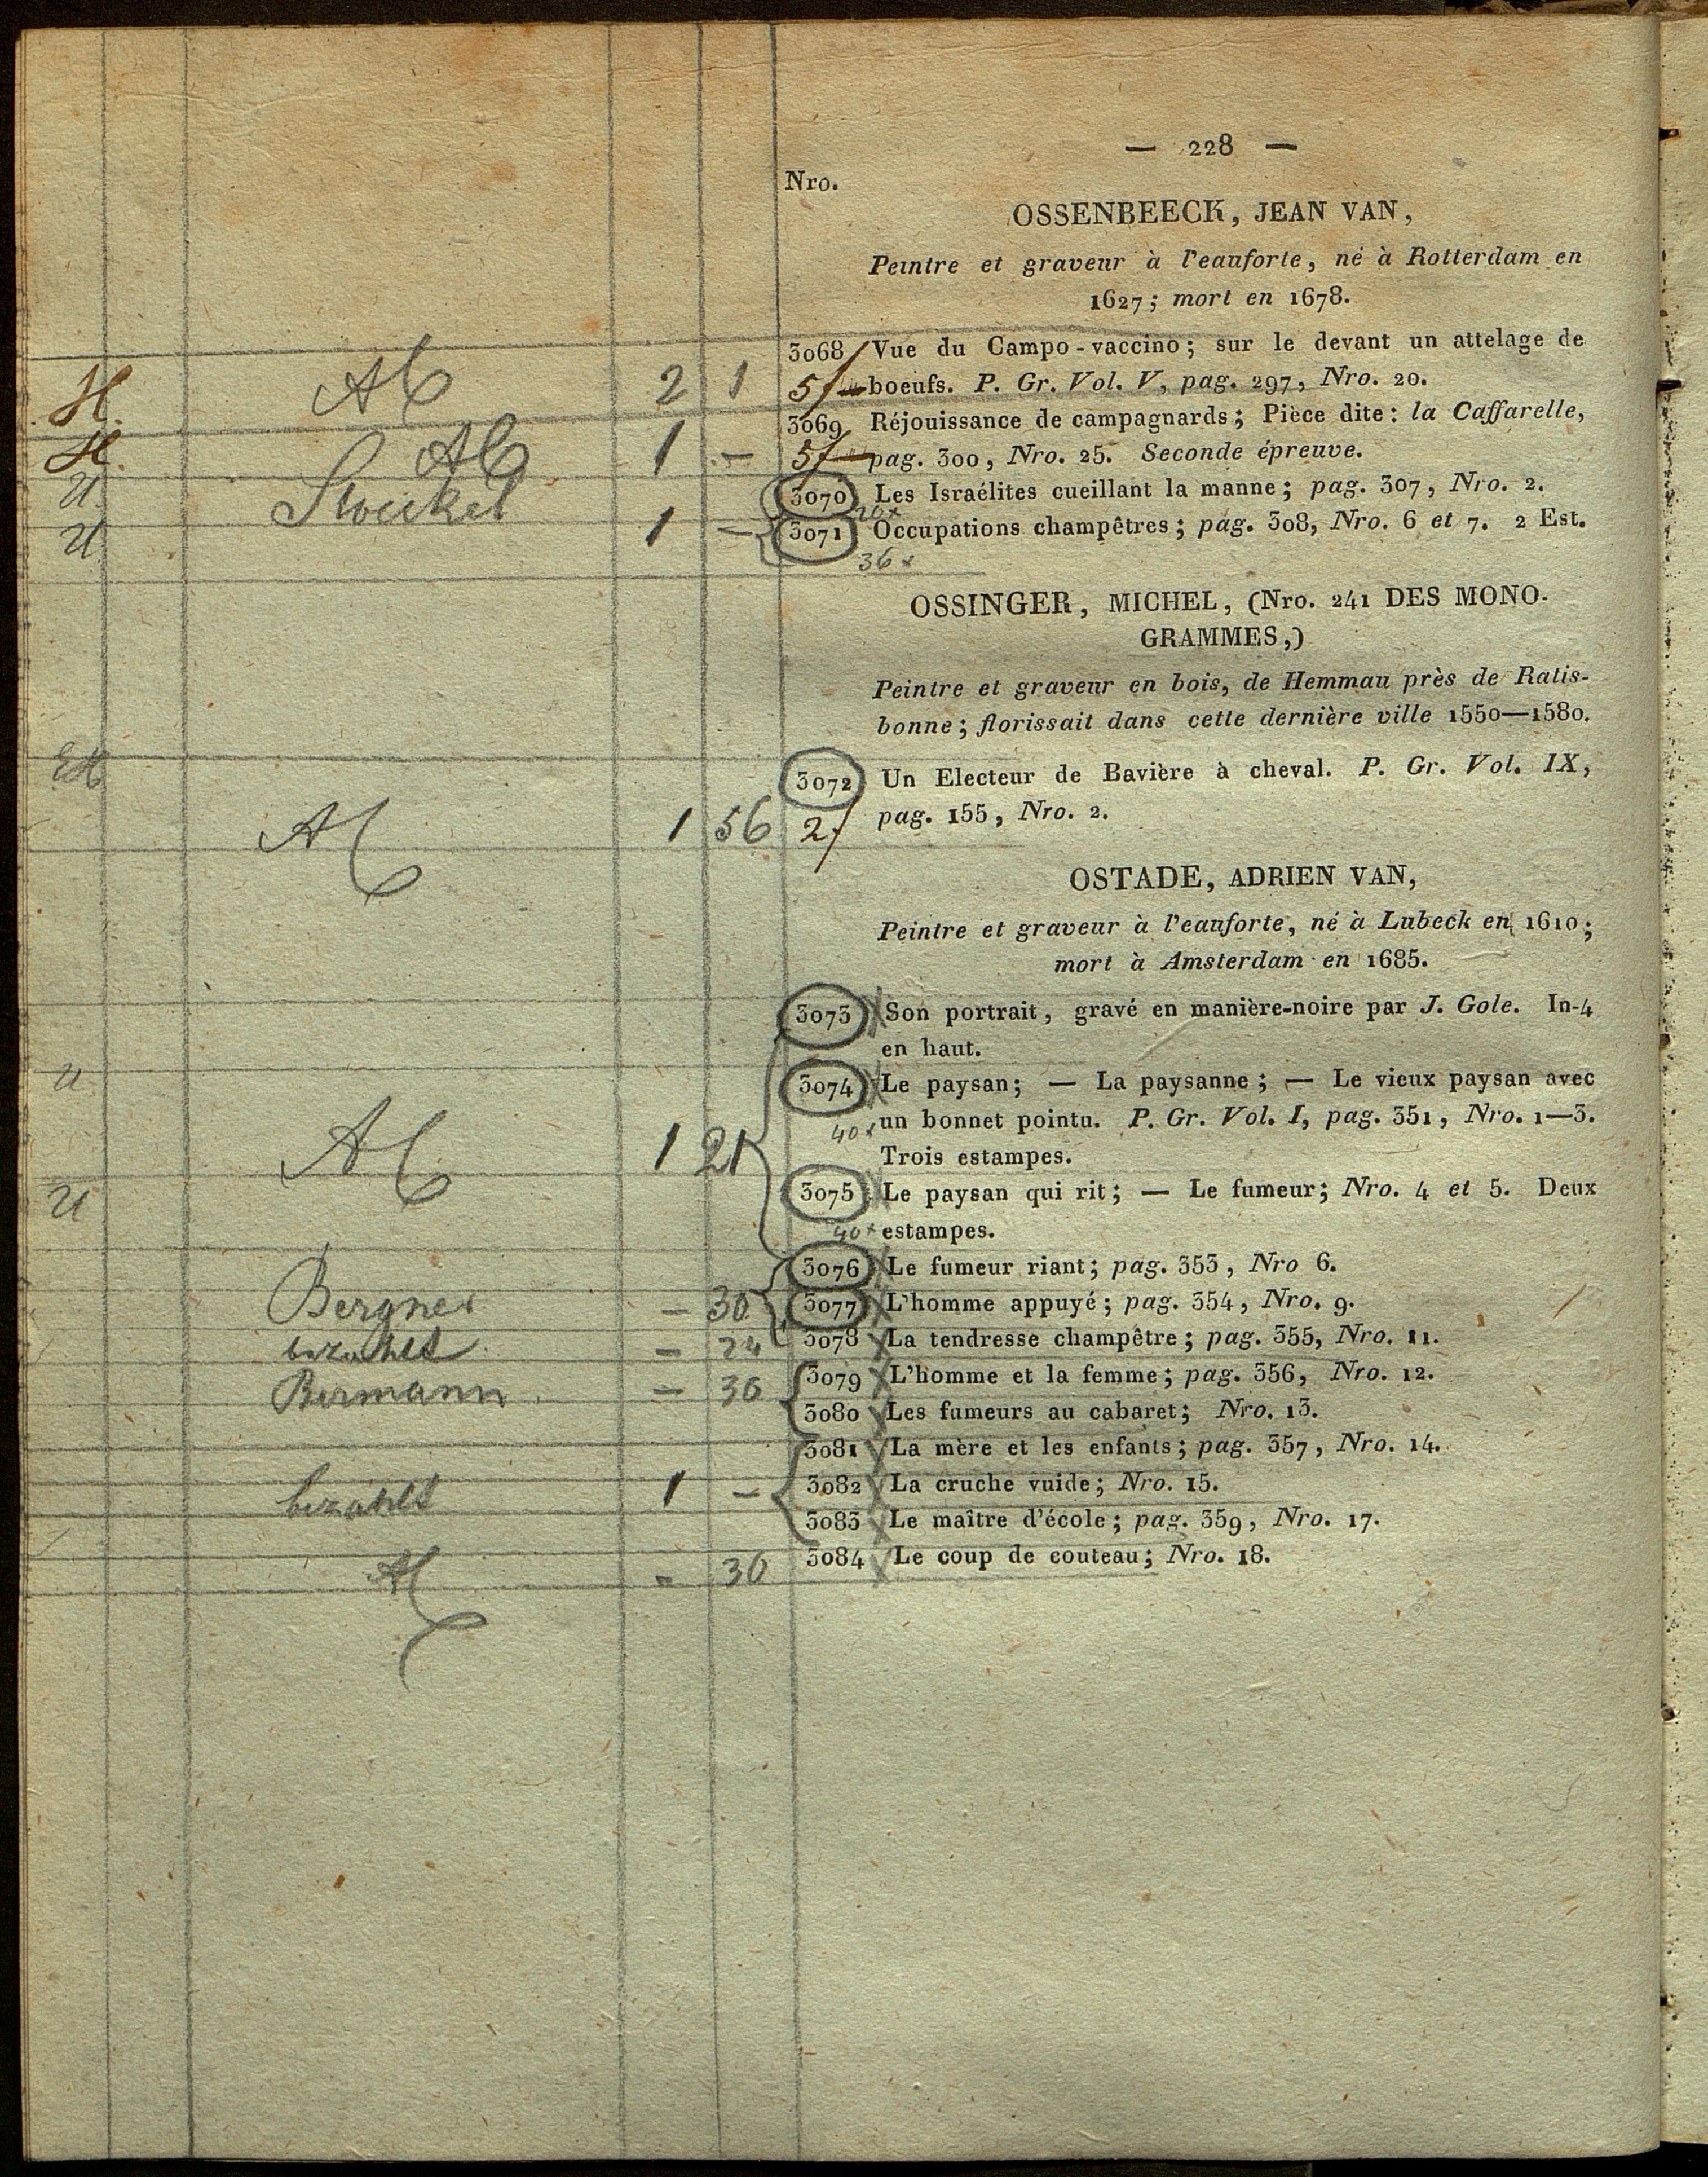 — 228 —
Nro.
OSSENBEECK, JEAN VAN,
Peintre et graveur à l'eauforte, né à Rotterdam en
1627; mort en 1678.
3068 Vue du Campo-vaccino; sur le devant un attelage de
H. 2 1 5 boeufs. P. Gr. Vol. V, pag. 297, Nro. 20.
3069 Réjouissance de campagnards; Pièce dite: la Caffarelle,
H. 1 - 5 pag. 300, Nro. 25. Seconde épreuve.
U 3070 Les Israélites cueillant la manne; pag. 307, Nro. 2.
20x
U 1 - 3071 Occupations champêtres; pag. 308, Nro. 6 et 7. 2 Est.
36x
OSSINGER, MICHEL, (Nro. 241 DES MONO-
GRAMMES,)
Peintre et graveur en bois, de Hemmau près de Ratis-
bonne; florissait dans cette dernière ville 1550—1580.
3072 Un Electeur de Bavière à cheval. P. Gr. Vol. IX,
1 56 2 pag. 155, Nro. 2.
OSTADE, ADRIEN VAN,
Peintre et graveur à l'eauforte, né à Lubeck en 1610;
mort à Amsterdam en 1685.
3073 Son portrait, gravé en manière-noire par J. Gole. In-4
en haut.
U 3074 Le paysan; — La paysanne; — Le vieux paysan avec
40x un bonnet pointu. P. Gr. Vol. I, pag. 351, Nro. 1—3.
1 21 Trois estampes.
U 3075 Le paysan qui rit; — Le fumeur; Nro. 4 et 5. Deux
40x estampes.
3076 Le fumeur riant; pag. 353, Nro 6.
Bergner - 30 3077 L'homme appuyé; pag. 354, Nro. 9.
bezahlt - 24 3078 La tendresse champêtre; pag. 355, Nro. 11.
Bermann - 36 3079 L'homme et la femme; pag. 356, Nro. 12.
3080 Les fumeurs au cabaret; Nro. 13.
3081 La mère et les enfants; pag. 357, Nro. 14.
bezahlt 1 - 3082 La cruche vuide; Nro. 15.
3083 Le maître d'école; pag. 359, Nro. 17.
- 30 3084 Le coup de couteau; Nro. 18.